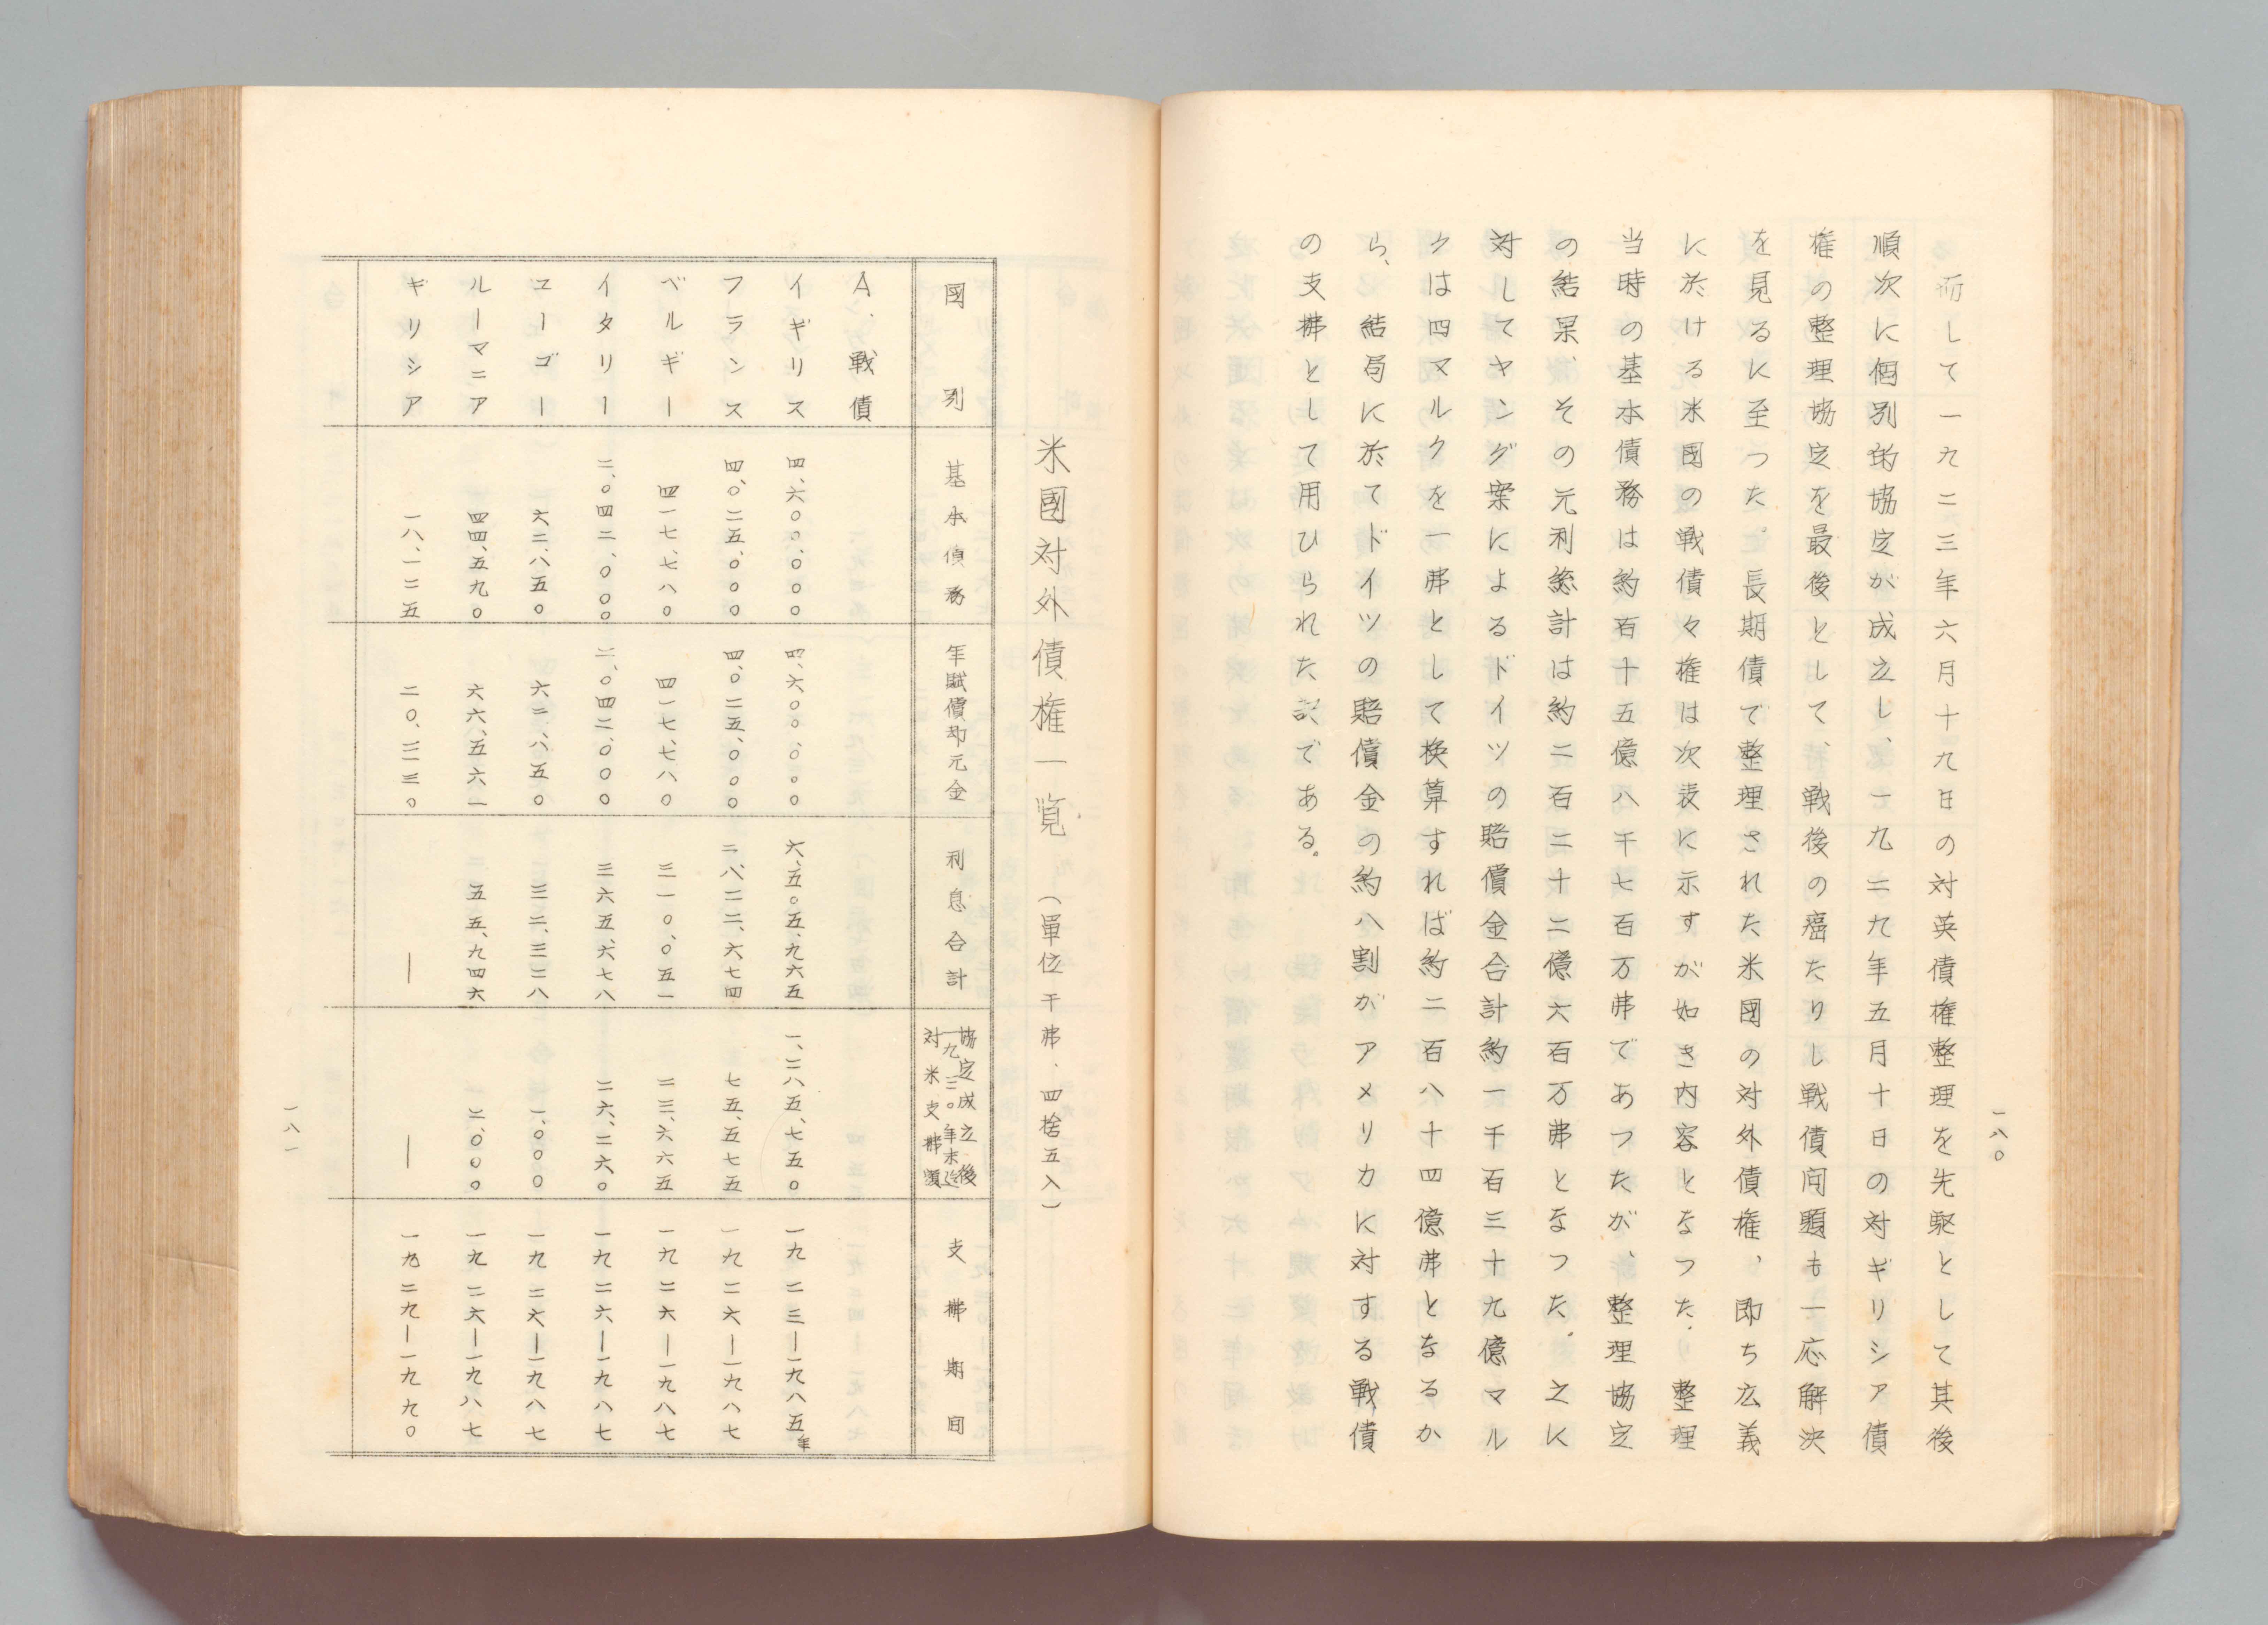 而して一九二三年六月十九日の対英債権整理を先駆として其後
順次に個別的協定が成立し、一九二九年五月十日の対ギリシア債
権の整理協定を最後として、戦後の癌たりし戦債問題も一応解決
を見るに至つた。長期債で整理された米國の対外債権、即ち広義
に於ける米國の戦債々権は次表に示すが如き内容となつた。整理
当時の基本債務は約百十五億八千七百万弗であつたが、整理協定
の結果、その元利総計は約二百二十二億六百万弗となつた。之に
対してヤング案によるドイツの賠償金合計約一千百三十九億マル
クは四マルクを一弗として換算すれば約二百八十四億弗となるか
ら、結局に於てドイツの賠償金の約八割がアメリカに対する戦債
の支拂として用ひられた訳である。
一八〇
米國対外債権一覧 (單位千弗、四捨五入)
國別 基本債務 年賦償却元金 利息合計 協定成立後一九三〇年末迄対米支拂額 支拂期間
A、戦債
イギリス 四、六〇〇、〇〇〇 四、六〇〇、〇〇〇 六、五〇五、九六五 一、二八五、七五〇 一九二三―一九八五年
フランス 四、〇二五、〇〇〇 四、〇二五、〇〇〇 二、八二二、六七四 七五、五七五 一九二六―一九八七
ベルギー 四一七、七八〇 四一七、七八〇 三一〇、〇五一 二三、六六五 一九二六―一九八七
イタリー 二、〇四二、〇〇〇 二、〇四二、〇〇〇 三六五、六七八 二六、二六〇 一九二六―一九八七
ユーゴー 六二、八五〇 六二、八五〇 三二、三二八 一、〇〇〇 一九二六―一九八七
ルーマニア 四四、五九〇 六六、五六一 五五、九四六 二、〇〇〇 一九二六―一九八七
ギリシア 一八、一二五 二〇、三三〇 ― ― 一九二九―一九九〇
一八一